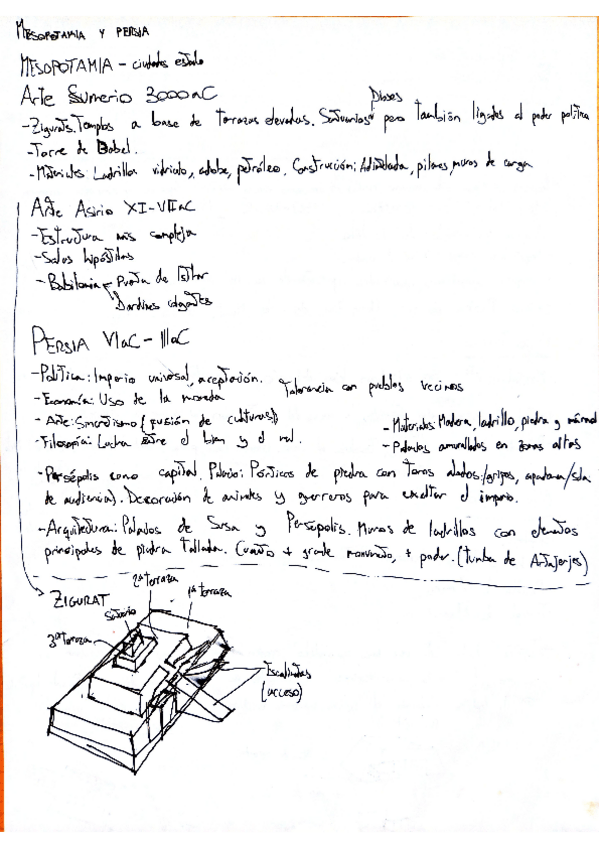 MESOPOTAMIA Y PERSIA
MESOPOTAMIA - ciudades estado
Arte Sumerio 3000aC
Dioses
-Zigurats. Templos a base de terrazas elevadas. Santuarios pero también ligados al poder política
-Torre de Babel.
-Materiales: Ladrillo vidriado, adobe, petróleo. Construcción: Adintelada, pilares, muros de carga
Arte Asirio XI-VIIaC
-Estructura más compleja
-Salas hipóstilas
-Babilonia Puerta de Isthar
Jardines colgantes
PERSIA VIaC - IIIaC
-Política: Imperio universal, aceptación. Tolerancia con pueblos vecinos
-Economía: Uso de la moneda
-Arte: Sincretismo (fusión de culturas)
-Materiales: Madera, ladrillo, piedra y mármol
-Filosofía: Lucha entre el bien y el mal.
-Palacios amurallados en zonas altas
-Persépolis como capital. Palacio: Pórticos de piedra con toros alados/grifos, apadana/sala
de audiencia). Decoración de animales y guerreros para exaltar el imperio.
-Arquitectura: Palacios de Susa y Persépolis. Muros de ladrillos con elementos
principales de piedra tallada. Cuanto + grade monumento, + poder. (tumba de Artajerjes)
ZIGURAT
2ª terraza
1ª terraza
Santuario
3ª terraza
Escalinatas
(acceso)